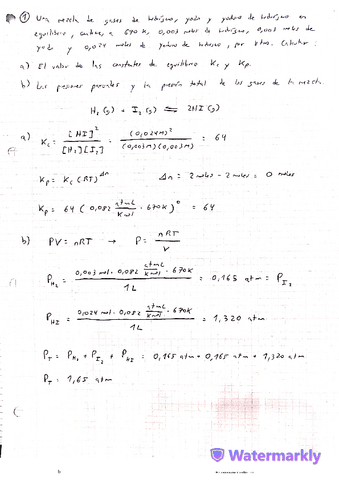 ① Una mezcla de gases de hidrógeno, yodo y yoduro de hidrógeno en
equilibrio, contiene, a 670 K, 0,003 moles de hidrógeno, 0,003 moles de
yodo y 0,024 moles de yoduro de hidrógeno, por litro. Calcular:
a) El valor de las constantes de equilibrio Kc y Kp.
b) Las presiones parciales y la presión total de los gases de la mezcla.
H₂ (g) + I₂ (g) ⇌ 2HI (g)
a) Kc = [HI]² / [H₂][I₂] = (0,024M)² / (0,003M)(0,003M) = 64
Kp = Kc (RT)^Δn Δn = 2 moles - 2 moles = 0 moles
Kp = 64 (0,082 atmL/Kmol · 670K)⁰ = 64
b) PV = nRT → P = nRT / V
P_H₂ = 0,003 mol · 0,082 atmL/Kmol · 670K / 1L = 0,165 atm = P_I₂
P_HI = 0,024 mol · 0,082 atmL/Kmol · 670K / 1L = 1,320 atm
P_T = P_H₂ + P_I₂ + P_HI = 0,165 atm + 0,165 atm + 1,320 atm
P_T = 1,65 atm
Watermarkly